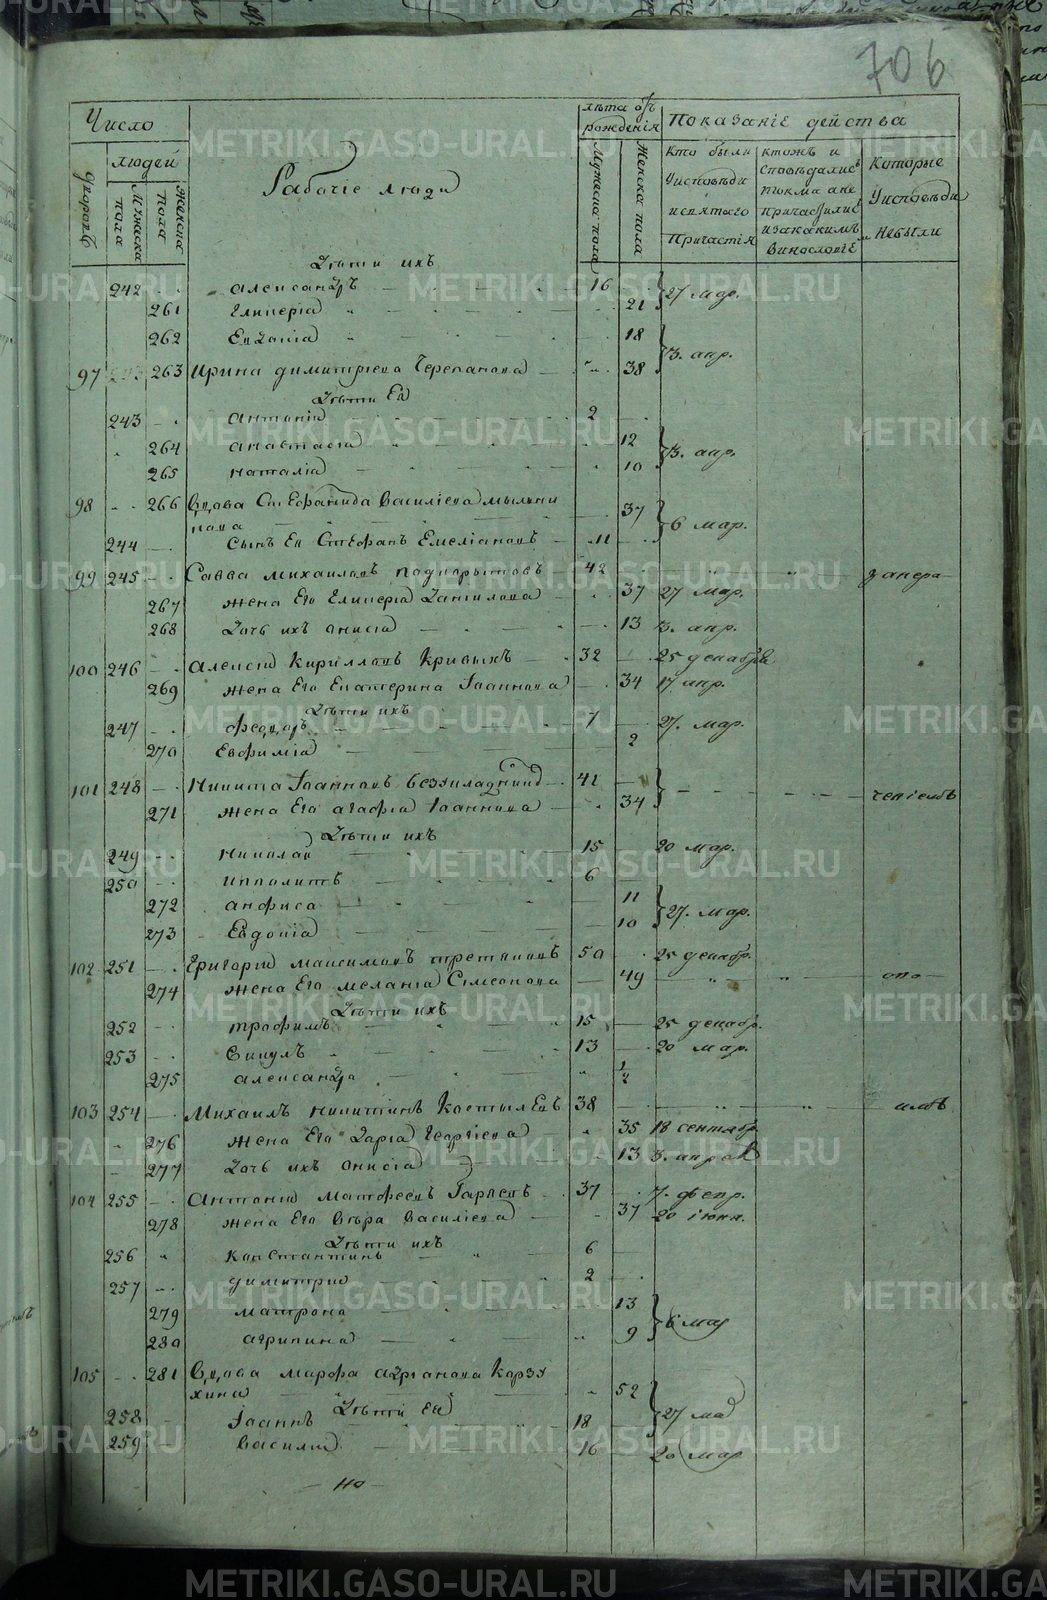 706
Число
людей
Дворовъ
Мужеска пола
Женска пола
Рабочіе люди
лѣта отъ рожденія
Мужеска пола
Женска пола
Показаніе действа
Кто были Уисповѣди и святаго Причастія
ктожъ и сповѣдались токмо а не причастились и за какимъ винословіе
Которые Уисповѣди Небыли
Дѣти ихъ
242 Александръ 16 27 мар.
261 Гликерія 21
262 Евдокія 18 3. апр.
97 263 Ирина Димитріева Черепанова 38
Дѣти Ея
243 Антоній 2
264 Анастасія 12 3. апр.
265 Наталія 10
98 266 Вдова Стефанида Василіева Мыльни
кова 37 6 мар.
244 Сынъ Ея Стефанъ Емеліановъ 11
99 245 Савва Михаиловъ Подкорытовъ 42
267 жена Его Гликерія Данилова 37 27 мар.
268 Дочь ихъ Анисія 13 3. апр.
100 246 Алексій Кирилловъ Кривыхъ 32 25 декабря
269 жена Его Екатерина Іоаннова 34 17 апр.
Дѣти ихъ
247 Феодоръ 7 27. мар.
270 Евфимія 2
101 248 Никита Іоанновъ 41
271 жена Его Агафія Іоаннова 34
Дѣти ихъ
249 Николай 15 20 мар.
250 Ипполитъ 6
272 Анфиса 11 27. мар.
273 Евдокія 10
102 251 Григорій Максимовъ Третьяковъ 50 25 декабр.
274 жена Его Меланія Сімеонова 49
Дѣти ихъ
252 Трофимъ 15 25 декабр.
253 Викулъ 13 20 мар.
275 Александра 1/2
103 254 Михаилъ Никитинъ Костылевъ 38
276 жена Его Дарія Георгіева 35 18 сентябр.
277 Дочь ихъ Анисія 13 3. апреля
104 255 Антоній Матфеевъ 37 7. февр.
278 жена Его Вѣра Василіева 37 20 іюня.
Дѣти ихъ
256 Константинъ 6
257 Димитрій 2
279 Матрона 13 6 мар
280 Агрипина 9
105 281 Вдова Марфа Адріанова Корзу
хина 52
Дѣти Ея
258 Іоаннъ 18 27 мар
259 Василій 16 20 мар
METRIKI.GASO-URAL.RU